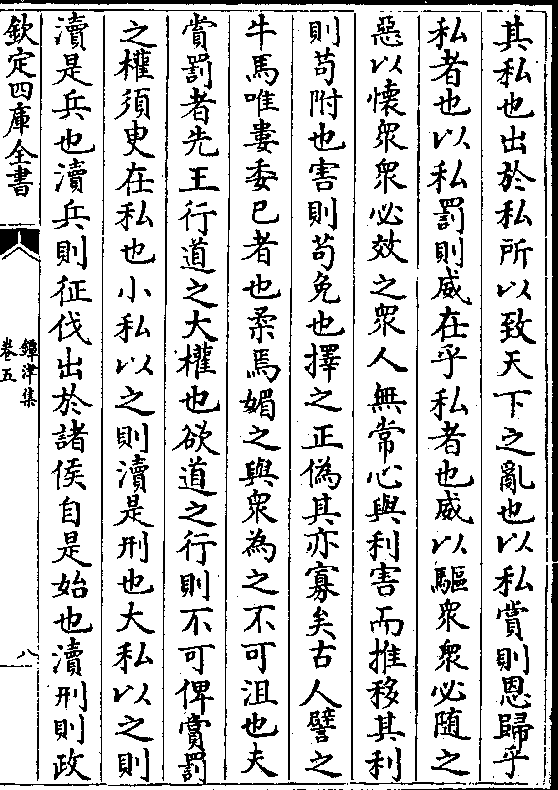 其私也出於私所以致天下之亂也以私賞則恩歸乎
私者也以私罰則威在乎私者也威以驅衆衆必随之
惡以懷衆衆必效之衆人無常心與利害而推移其利
則苟附也害則苟免也擇之正偽其亦寡矣古人譬之
牛馬唯婁委已者也柔焉媚之與衆為之不可沮也夫
賞罰者先王行道之大權也欲道之行則不可俾賞罰
之權須臾在私也小私以之則瀆是刑也大私以之則
瀆是兵也瀆兵則征伐出於諸侯自是始也瀆刑則政
欽定四庫全書
鐔津集
卷五
八